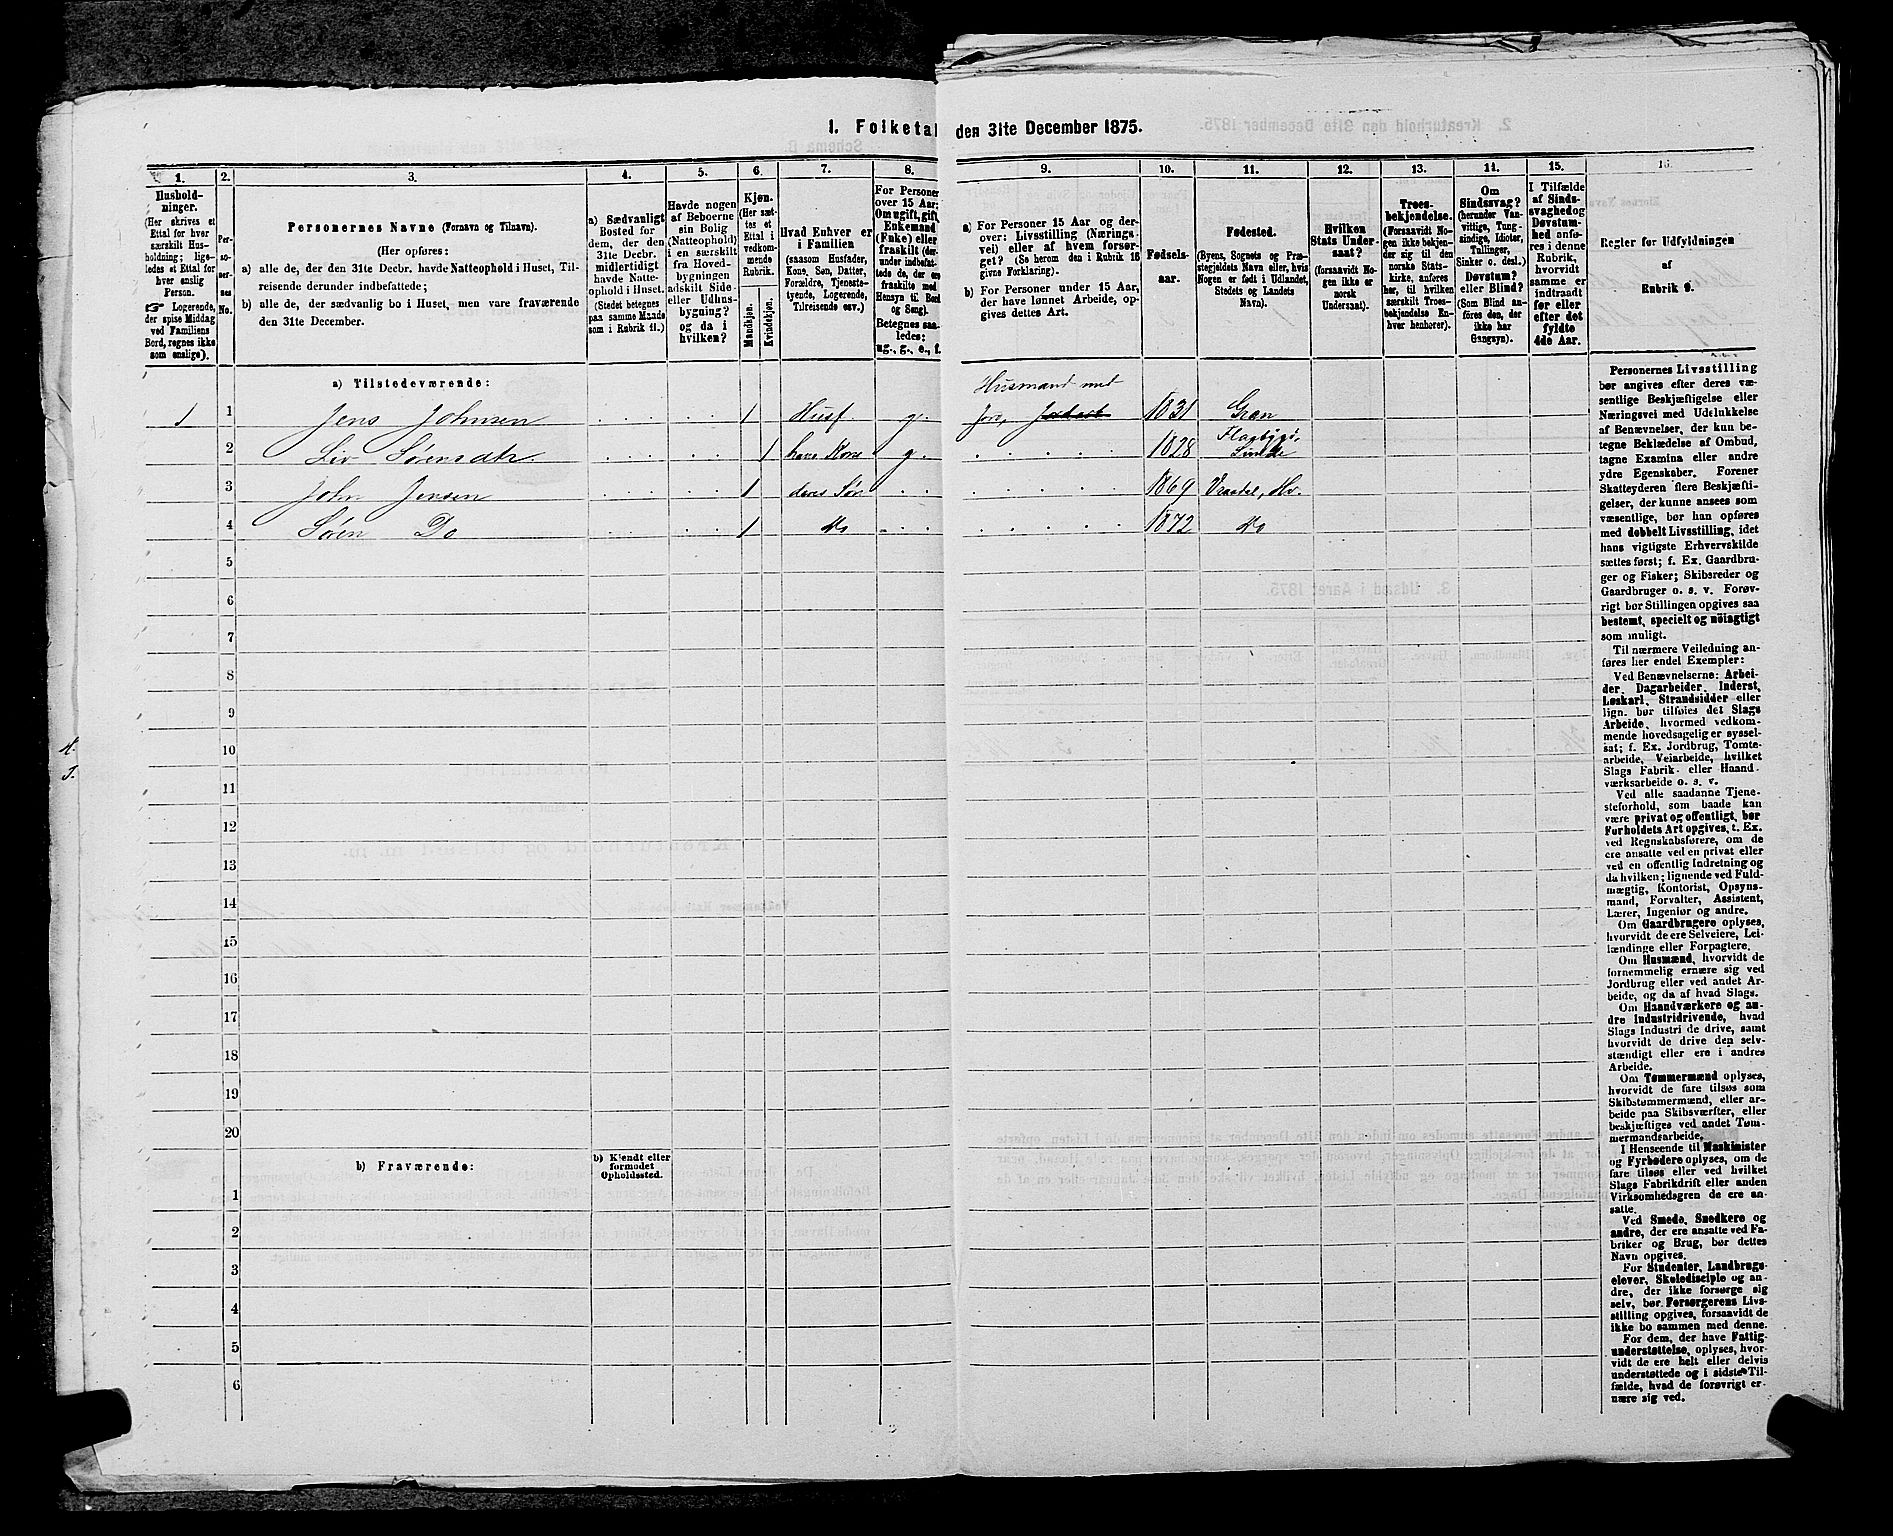 1. Folketal den 31te December 1875.
1.
2.
3.
4.
5.
6.
7.
8.
9.
10.
11.
12.
13.
14.
15.
16.
Hushold-
ninger.
(Her skrives et
Ettal for hver
særskilt Hus-
holdning; lige-
ledes et Ettal for
hver enslig
Person.
☞ Logerende,
der spise Middag
ved Familiens
Bord, regnes ikke
som enslige).
Per-
so-
ner-
nes
No.
Personernes Navne (Fornavn og Tilnavn).
(Her opføres:
a) alle de, der den 31te Decbr. havde Natteophold i Huset, Til-
reisende derunder indbefattede;
b) alle de, der sædvanlig bo i Huset, men vare fraværende
den 31te December.
a) Sædvanligt
Bosted for
dem, der den
31te Decbr.
midlertidigt
havde Natte-
ophold i Huset.
(Stedet betegnes
paa samme Maade
som i Rubrik 11.)
Havde nogen
af Beboerne
sin Bolig
(Natteophold)
i en særskilt
fra Hoved-
bygningen
adskilt Side-
eller Udhus-
bygning?
og da i
hvilken?
Kjøn.
(Her sæt-
tes et
Ettal i
vedkom-
mende
Rubrik.
Mandkjøn.
Kvindekjøn.
Hvad Enhver er
i Familien
(saasom Husfader,
Kone, Søn, Datter,
Forældre, Tjeneste-
tyende, Logerende,
Tilreisende osv.)
For Personer
over 15 Aar:
Om ugift, gift,
Enkemand
(Enke) eller
fraskilt (der-
under indbefat-
tede de, der ere
fraskilte med
Hensyn til Bord
og Seng).
Betegnes saa-
ledes:
ug., g., e., f.
a) For Personer 15 Aar og der-
over: Livsstilling (Nærings-
vei) eller af hvem forsør-
get? (Se herom den i Rubrik 16
givne Forklaring).
b) For Personer under 15 Aar,
der have lønnet Arbeide, op-
gives dettes Art.
Fødsels-
aar.
Fødested.
(Byens, Sognets og Præ-
stegjeldets Navn eller, hvis
Nogen er født i Udlandet,
Stedets og Landets
Navn).
Hvilken
Stats Under-
saat?
(forsaavidt No-
gen ikke er
norsk
Undersaat).
Troes-
bekjendelse.
(Forsaavidt No-
gen ikke bekjen-
der sig til den
norske Stats-
kirke, anføres
her, til hvilken
særskilt Troes-
bekjendelse En-
hver henhører).
Om
Sindssvag?
(herunder Van-
vittige, Tung-
sindige, Idioter,
Tullinger,
Sinker o. desl.)
Døvstum?
eller Blind?
(Som Blind an-
føres den, der
ikke har
Gangsyn).
I Tilfælde
af Sinds-
svaghed og
Døvstum-
hed anfø-
res i denne
Rubrik,
hvorvidt
samme er
indtraadt
før eller
efter det
fyldte
4de Aar.
Regler for Udfyldningen
af
Rubrik 9.
a) Tilstedeværende:
Husmand med
1 1 Jens Johnsen 1 Husf. g. Jord, 1831 Gran
2 Liv Sørensdtr 1 hans Kone g. 1828 Flaabygd,
3 John Jensen 1 deres Søn 1869 Vraadal, Hv.
4 Søren Do 1 Do 1872 Do
5
6
7
8
9
10
11
12
13
14
15
16
17
18
19
20
b) Fraværende:
b) Kjendt eller
formodet
Opholdssted.
1
2
3
4
5
6
Personernes Livsstilling
bør angives efter deres væ-
sentlige Beskjæftigelse eller
Næringsvei med Udelukkelse
af Benævnelser, der kun be-
tegne Beklædelse af Ombud,
tagne Examina eller andre
ydre Egenskaber. Forener
Skatteyderen flere Beskjæfti-
gelser, der kunne ansees som
væsentlige, bør han opføres
med dobbelt Livsstilling, idet
hans vigtigste Erhvervskilde
sættes først; f. Ex. Gaardbru-
ger og Fisker; Skibsreder og
Gaardbruger o. s. v. Forøv-
rigt bør Stillingen opgives saa
bestemt, specielt og nøiagtigt
som muligt.
Til nærmere Veiledning an-
føres her endel Exempler:
Ved Benævnelserne: Arbei-
der, Dagarbeider, Inderst,
Løskarl, Strandsidder eller
lign. bør tilføies det Slags
Arbeide, hvormed vedkom-
mende hovedsagelig er syssel-
sat; f. Ex. Jordbrug, Tomte-
arbeide, Veiarbeide, hvilket
Slags Fabrik- eller Haand-
værksarbeide o. s. v.
Ved alle saadanne Tjene-
steforhold, som baade kan
være privat og offentligt, bør
Forholdets Art opgives, t. Ex.
ved Regnskabsførere, om de
ere ansatte ved en privat eller
ved en offentlig Indretning og
da hvilken; lignende ved Fuld-
mægtig, Kontorist, Opsyns-
mand, Forvalter, Assistent,
Lærer, Ingeniør og andre.
Om Gaardbrugere oplyses,
hvorvidt de ere Selveiere, Lei-
lændinge eller Forpagtere.
Om Husmænd, hvorvidt de
fornemmelig ernære sig ved
Jordbrug eller ved andet Ar-
beide, og da af hvad Slags.
Om Haandværkere og an-
dre Industridrivende, hvad
Slags Industri de drive, samt
hvorvidt de drive den selv-
stændigt eller ere i andres
Arbeide.
Om Tømmermænd oplyses,
hvorvidt de fare tilsøs som
Skibstømmermænd, eller ar-
beide paa Skibsværfter, eller
beskjæftiges ved andet Tøm-
mermandsarbeide.
I Henseende til Maskinister
og Fyrbødere oplyses, om de
fare tilsøs eller ved hvilket
Slags Fabrikdrift eller anden
Virksomhedsgren de ere an-
satte.
Ved Smede, Snedkere og
andre, der ere ansatte ved Fa-
briker og Brug, bør dettes
Navn opgives.
For Studenter, Landbrugs-
elever, Skoledisciple og an-
dre, der ikke forsørge sig
selv, bør Forsørgerens Livs-
stilling opgives, forsaavidt de
ikke bo sammen med denne.
For dem, der have Fattig-
understøttelse, oplyses, hvor-
vidt de ere helt eller delvis
understøttede og i sidste Til-
fælde, hvad de forøvrigt er-
nære sig ved.